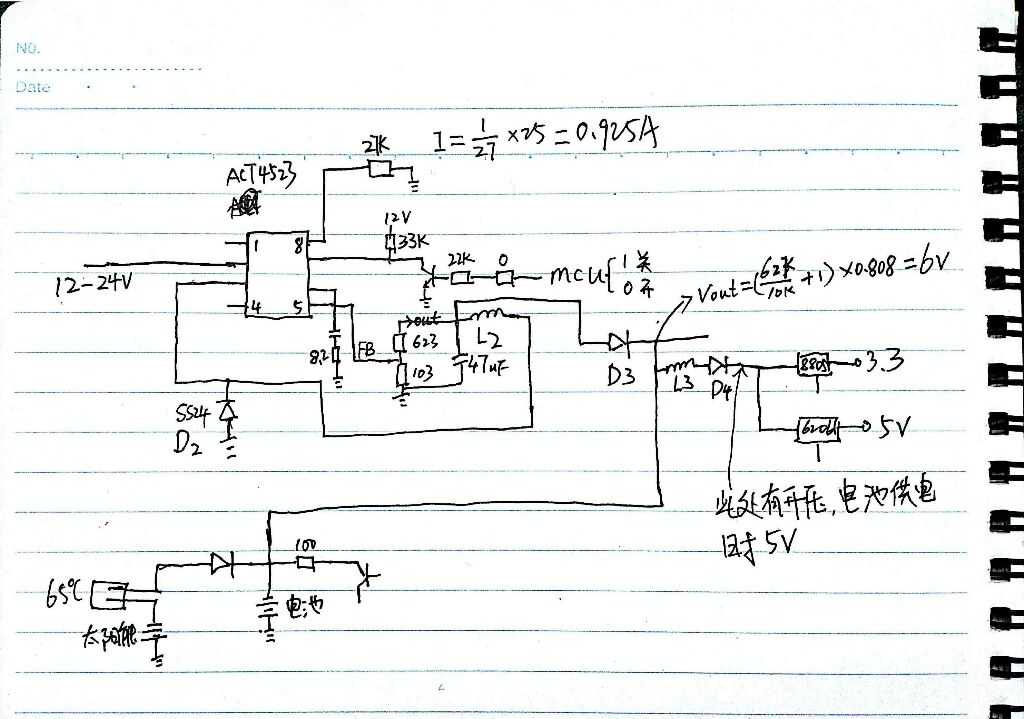 No.
Date
I = 1/27 × 25 = 0.925A
27K
ACT4523
12V
1 8
33K
22K 0
MCU { 1 关
0 开
12-24V
4 5
Vout = (62K/10K + 1) × 0.808 = 6V
out
623
L2
8.2
FB
103
47uF
D3
L3 D4
3.3
SS24
D2
5V
此处有升压,电池供电
时 5V
65℃
100
电池
太阳能